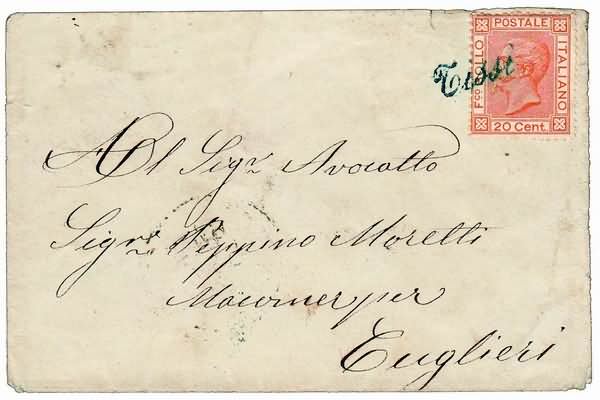 Fco BOLLO POSTALE ITALIANO
20 Cent.
Tissi
Al Sigr Avocatto
Signr Peppino Moretti
Macomer per
Cuglieri